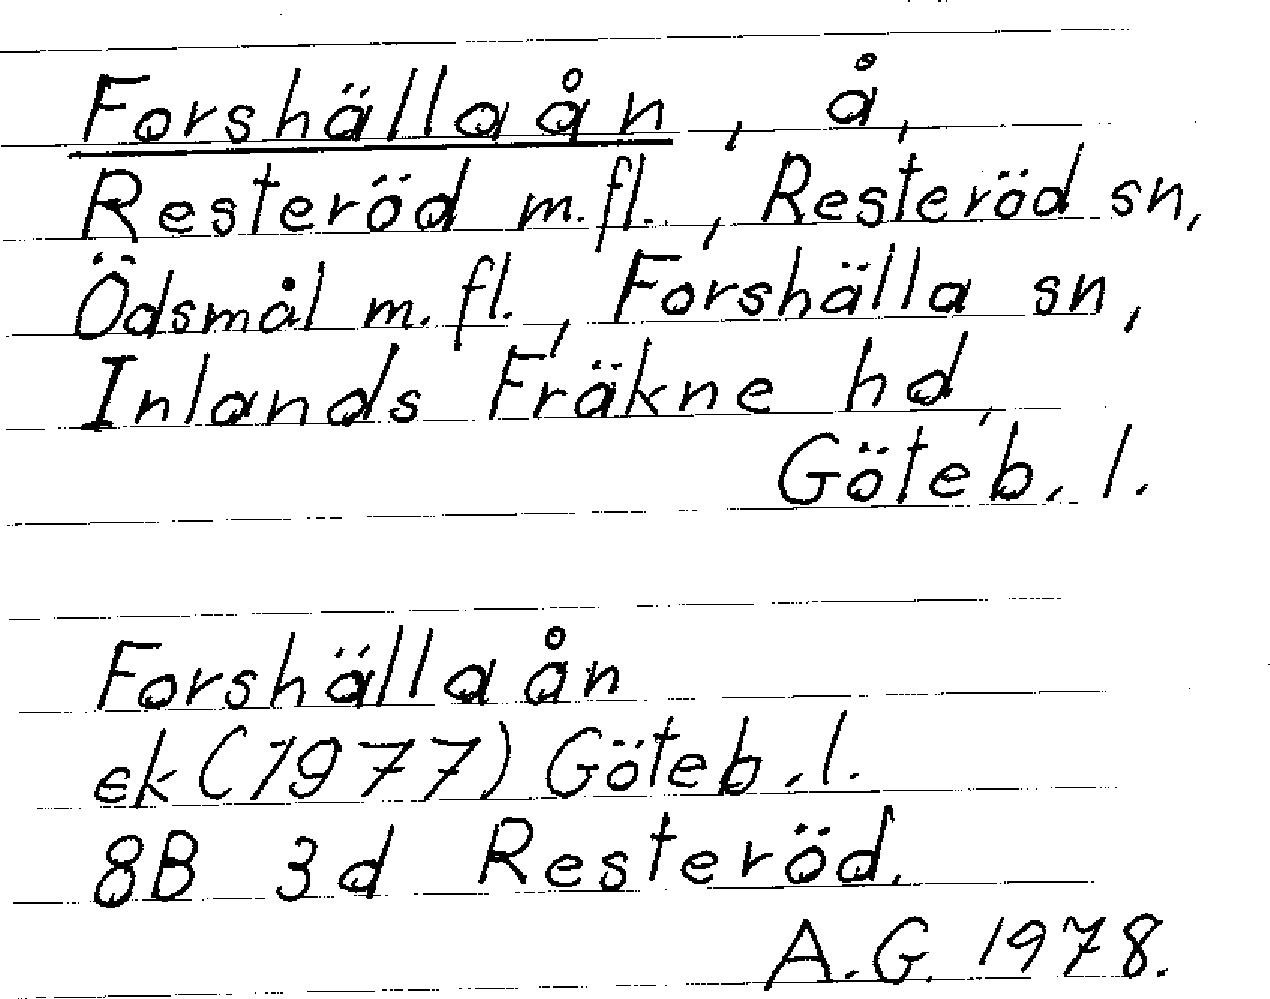 Forshällaån, å,
Resteröd m.fl., Resteröd sn,
Ödsmål m.fl., Forshälla sn,
Inlands Fräkne hd,
Göteb. l.
Forshällaån
ek (1977) Göteb. l.
8B 3d Resteröd.
A.G. 1978.